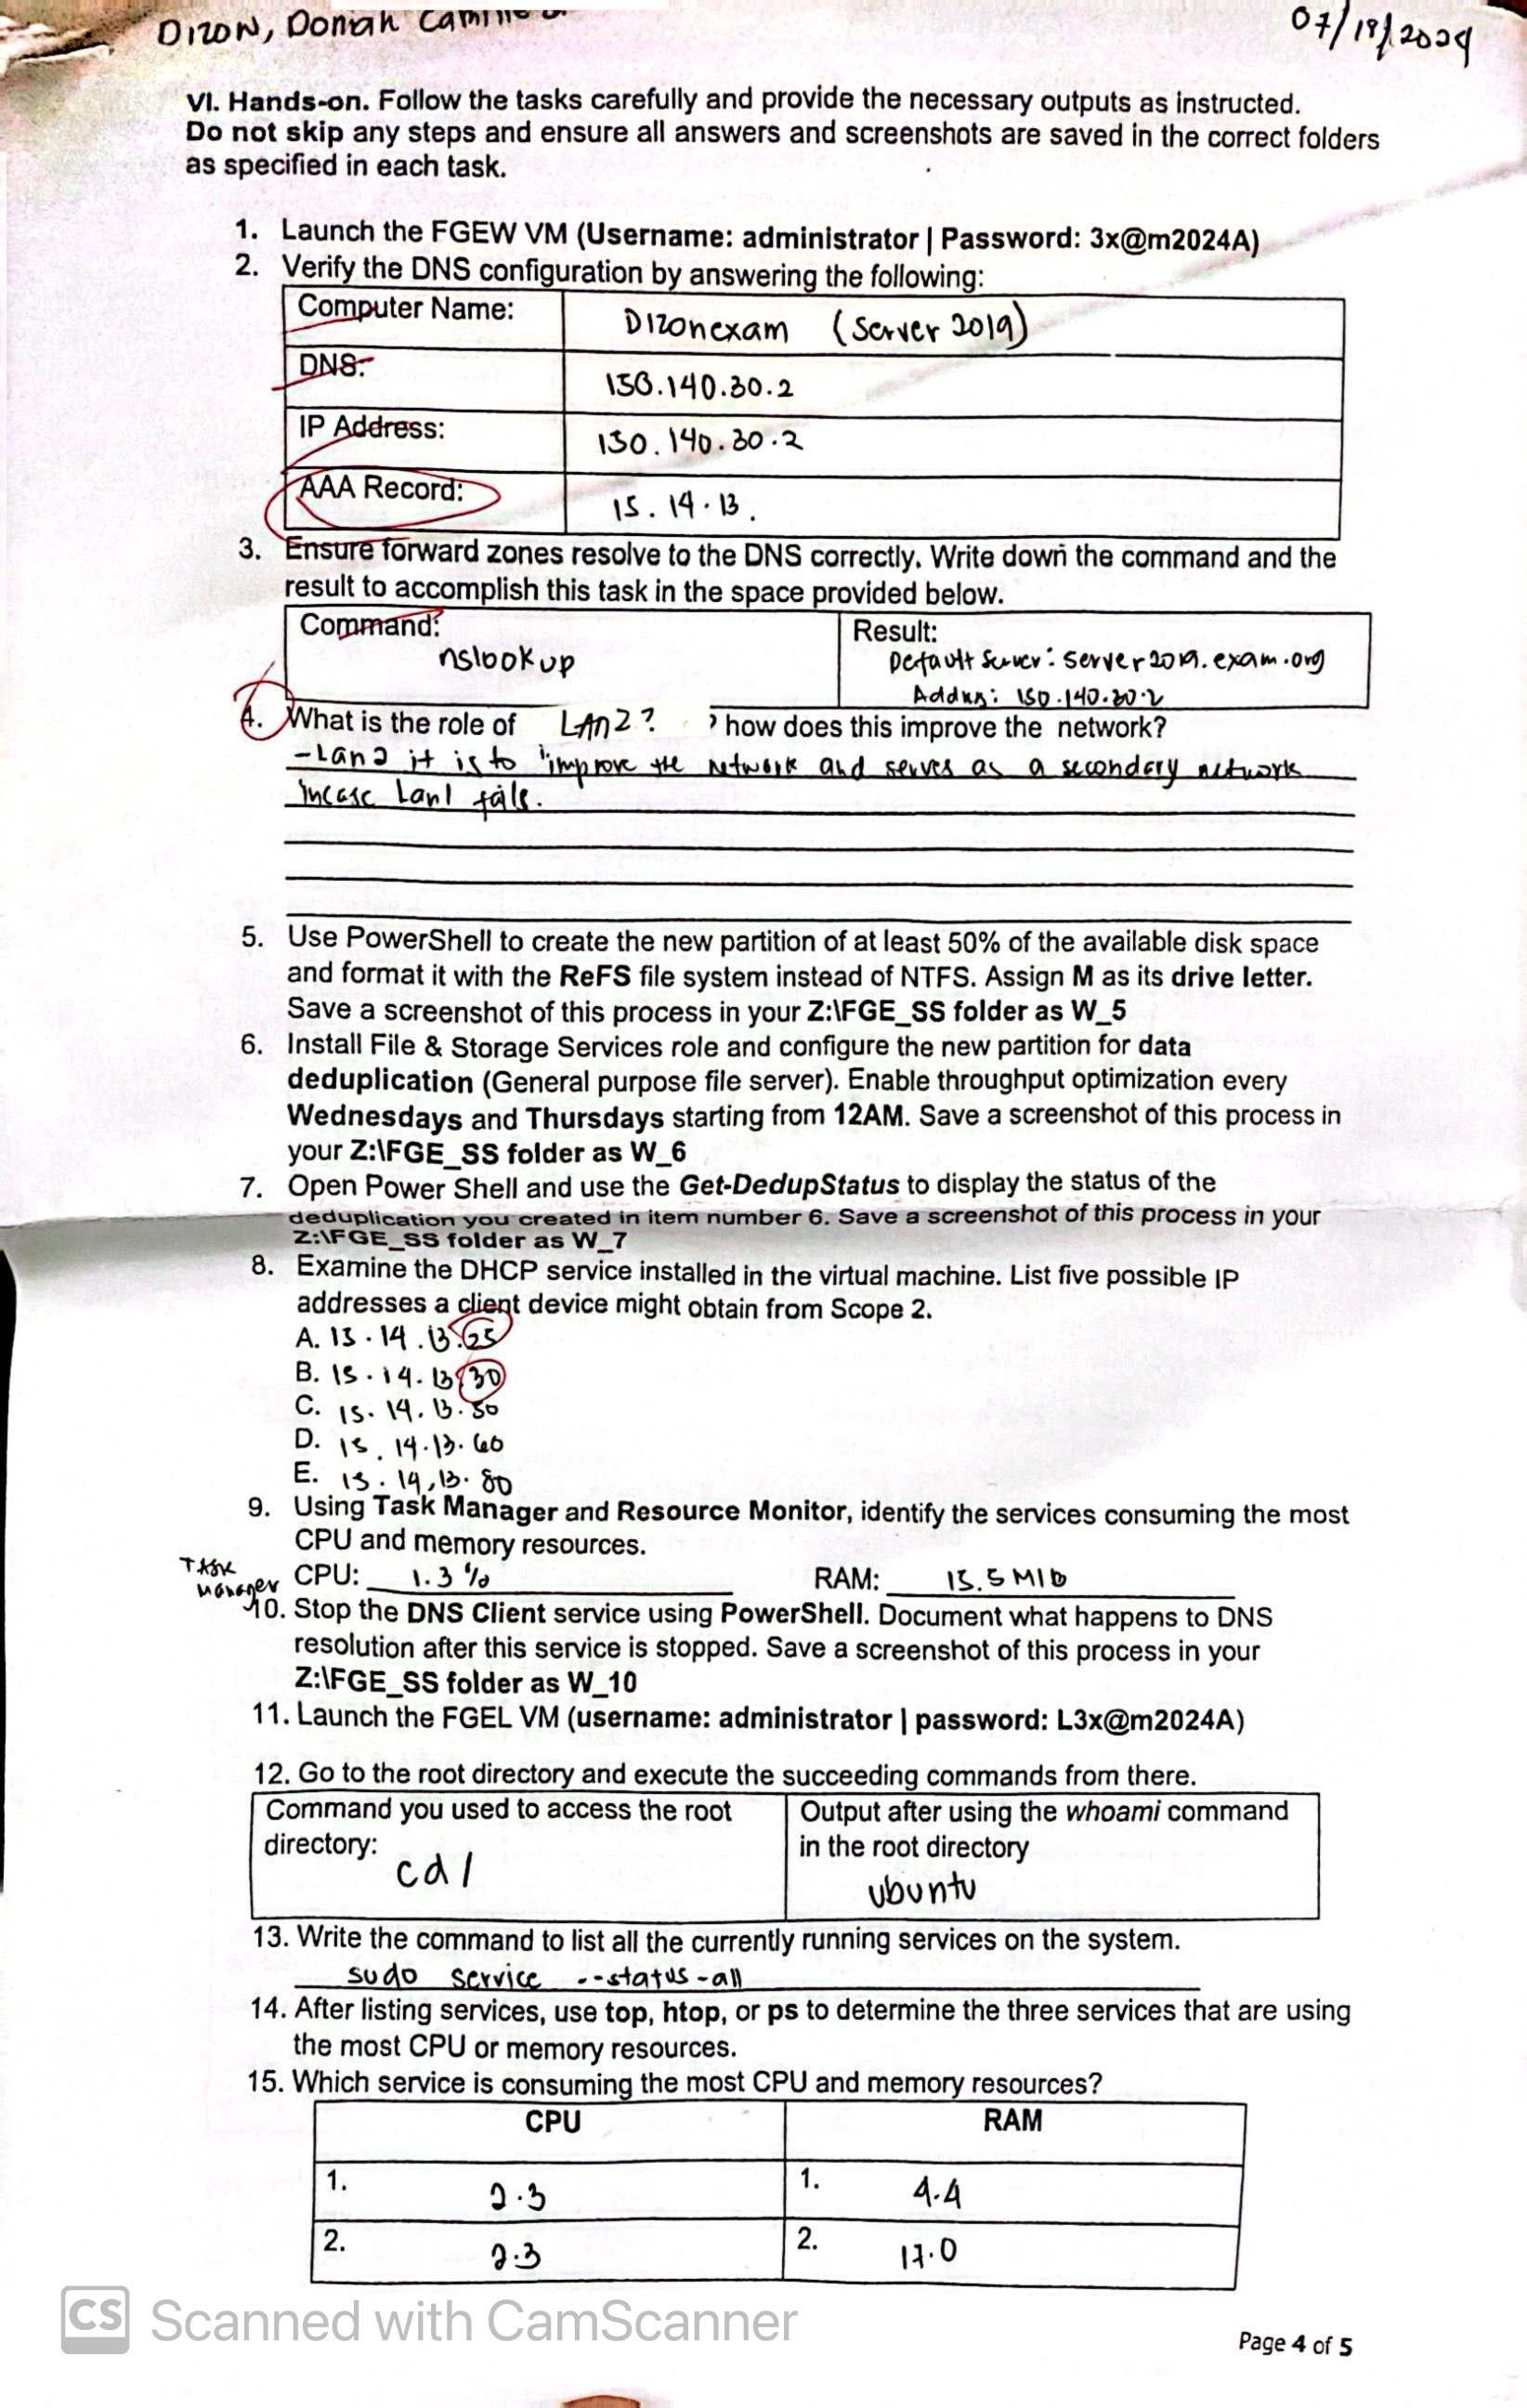 Dizon, Doniah Camille
07/19/2024
VI. Hands-on. Follow the tasks carefully and provide the necessary outputs as instructed.
Do not skip any steps and ensure all answers and screenshots are saved in the correct folders
as specified in each task.
1. Launch the FGEW VM (Username: administrator | Password: 3x@m2024A)
2. Verify the DNS configuration by answering the following:
Computer Name: Dizonexam (Server 2019)
DNS: 150.140.30.2
IP Address: 150.140.30.2
AAA Record: 15.14.13.
3. Ensure forward zones resolve to the DNS correctly. Write down the command and the
result to accomplish this task in the space provided below.
Command: Result:
nslookup Default Server: server2019.exam.org
Address: 150.140.30.2
4. What is the role of LAN2? ? how does this improve the network?
-Lan2 it is to improve the network and serves as a secondary network
incase Lan1 fails.
5. Use PowerShell to create the new partition of at least 50% of the available disk space
and format it with the ReFS file system instead of NTFS. Assign M as its drive letter.
Save a screenshot of this process in your Z:\FGE_SS folder as W_5
6. Install File & Storage Services role and configure the new partition for data
deduplication (General purpose file server). Enable throughput optimization every
Wednesdays and Thursdays starting from 12AM. Save a screenshot of this process in
your Z:\FGE_SS folder as W_6
7. Open Power Shell and use the Get-DedupStatus to display the status of the
deduplication you created in item number 6. Save a screenshot of this process in your
Z:\FGE_SS folder as W_7
8. Examine the DHCP service installed in the virtual machine. List five possible IP
addresses a client device might obtain from Scope 2.
A. 15.14.13.25
B. 15.14.13.30
C. 15.14.13.50
D. 15.14.13.60
E. 15.14.13.80
9. Using Task Manager and Resource Monitor, identify the services consuming the most
CPU and memory resources.
Task Manager CPU: 1.3 % RAM: 15.5 Mib
10. Stop the DNS Client service using PowerShell. Document what happens to DNS
resolution after this service is stopped. Save a screenshot of this process in your
Z:\FGE_SS folder as W_10
11. Launch the FGEL VM (username: administrator | password: L3x@m2024A)
12. Go to the root directory and execute the succeeding commands from there.
Command you used to access the root Output after using the whoami command
directory: in the root directory
cd / ubuntu
13. Write the command to list all the currently running services on the system.
sudo service --status-all
14. After listing services, use top, htop, or ps to determine the three services that are using
the most CPU or memory resources.
15. Which service is consuming the most CPU and memory resources?
CPU RAM
1. 2.3 1. 4.4
2. 2.3 2. 17.0
CS Scanned with CamScanner
Page 4 of 5